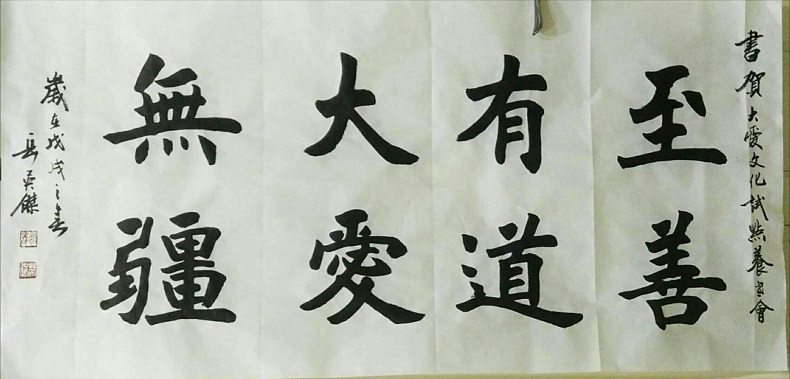 書賀大愛文化試點養老會
至善
有道
大愛
無疆
歲在戊戌之春
岳英傑